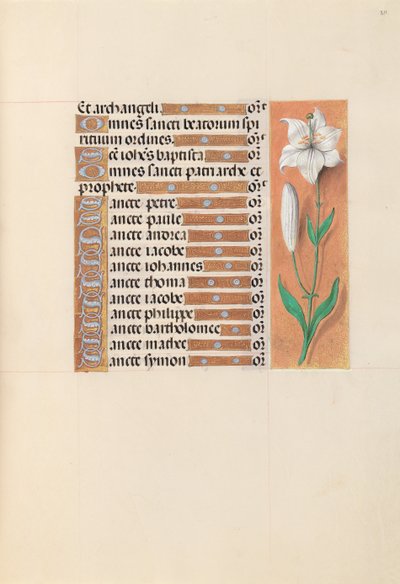 211
Et archangeli. or̄
Omnes sancti beatorum spi
rituum ordines. or̄
Sc̄e ioh̄es baptista or̄
Omnes sancti patriarche et
prophete or̄
Sancte petre or̄
Sancte paule or̄
Sancte andrea or̄
Sancte iacobe or̄
Sancte iohannes or̄
Sancte thoma or̄
Sancte iacobe or̄
Sancte philippe or̄
Sancte bartholomee or̄
Sancte mathee or̄
Sancte symon or̄